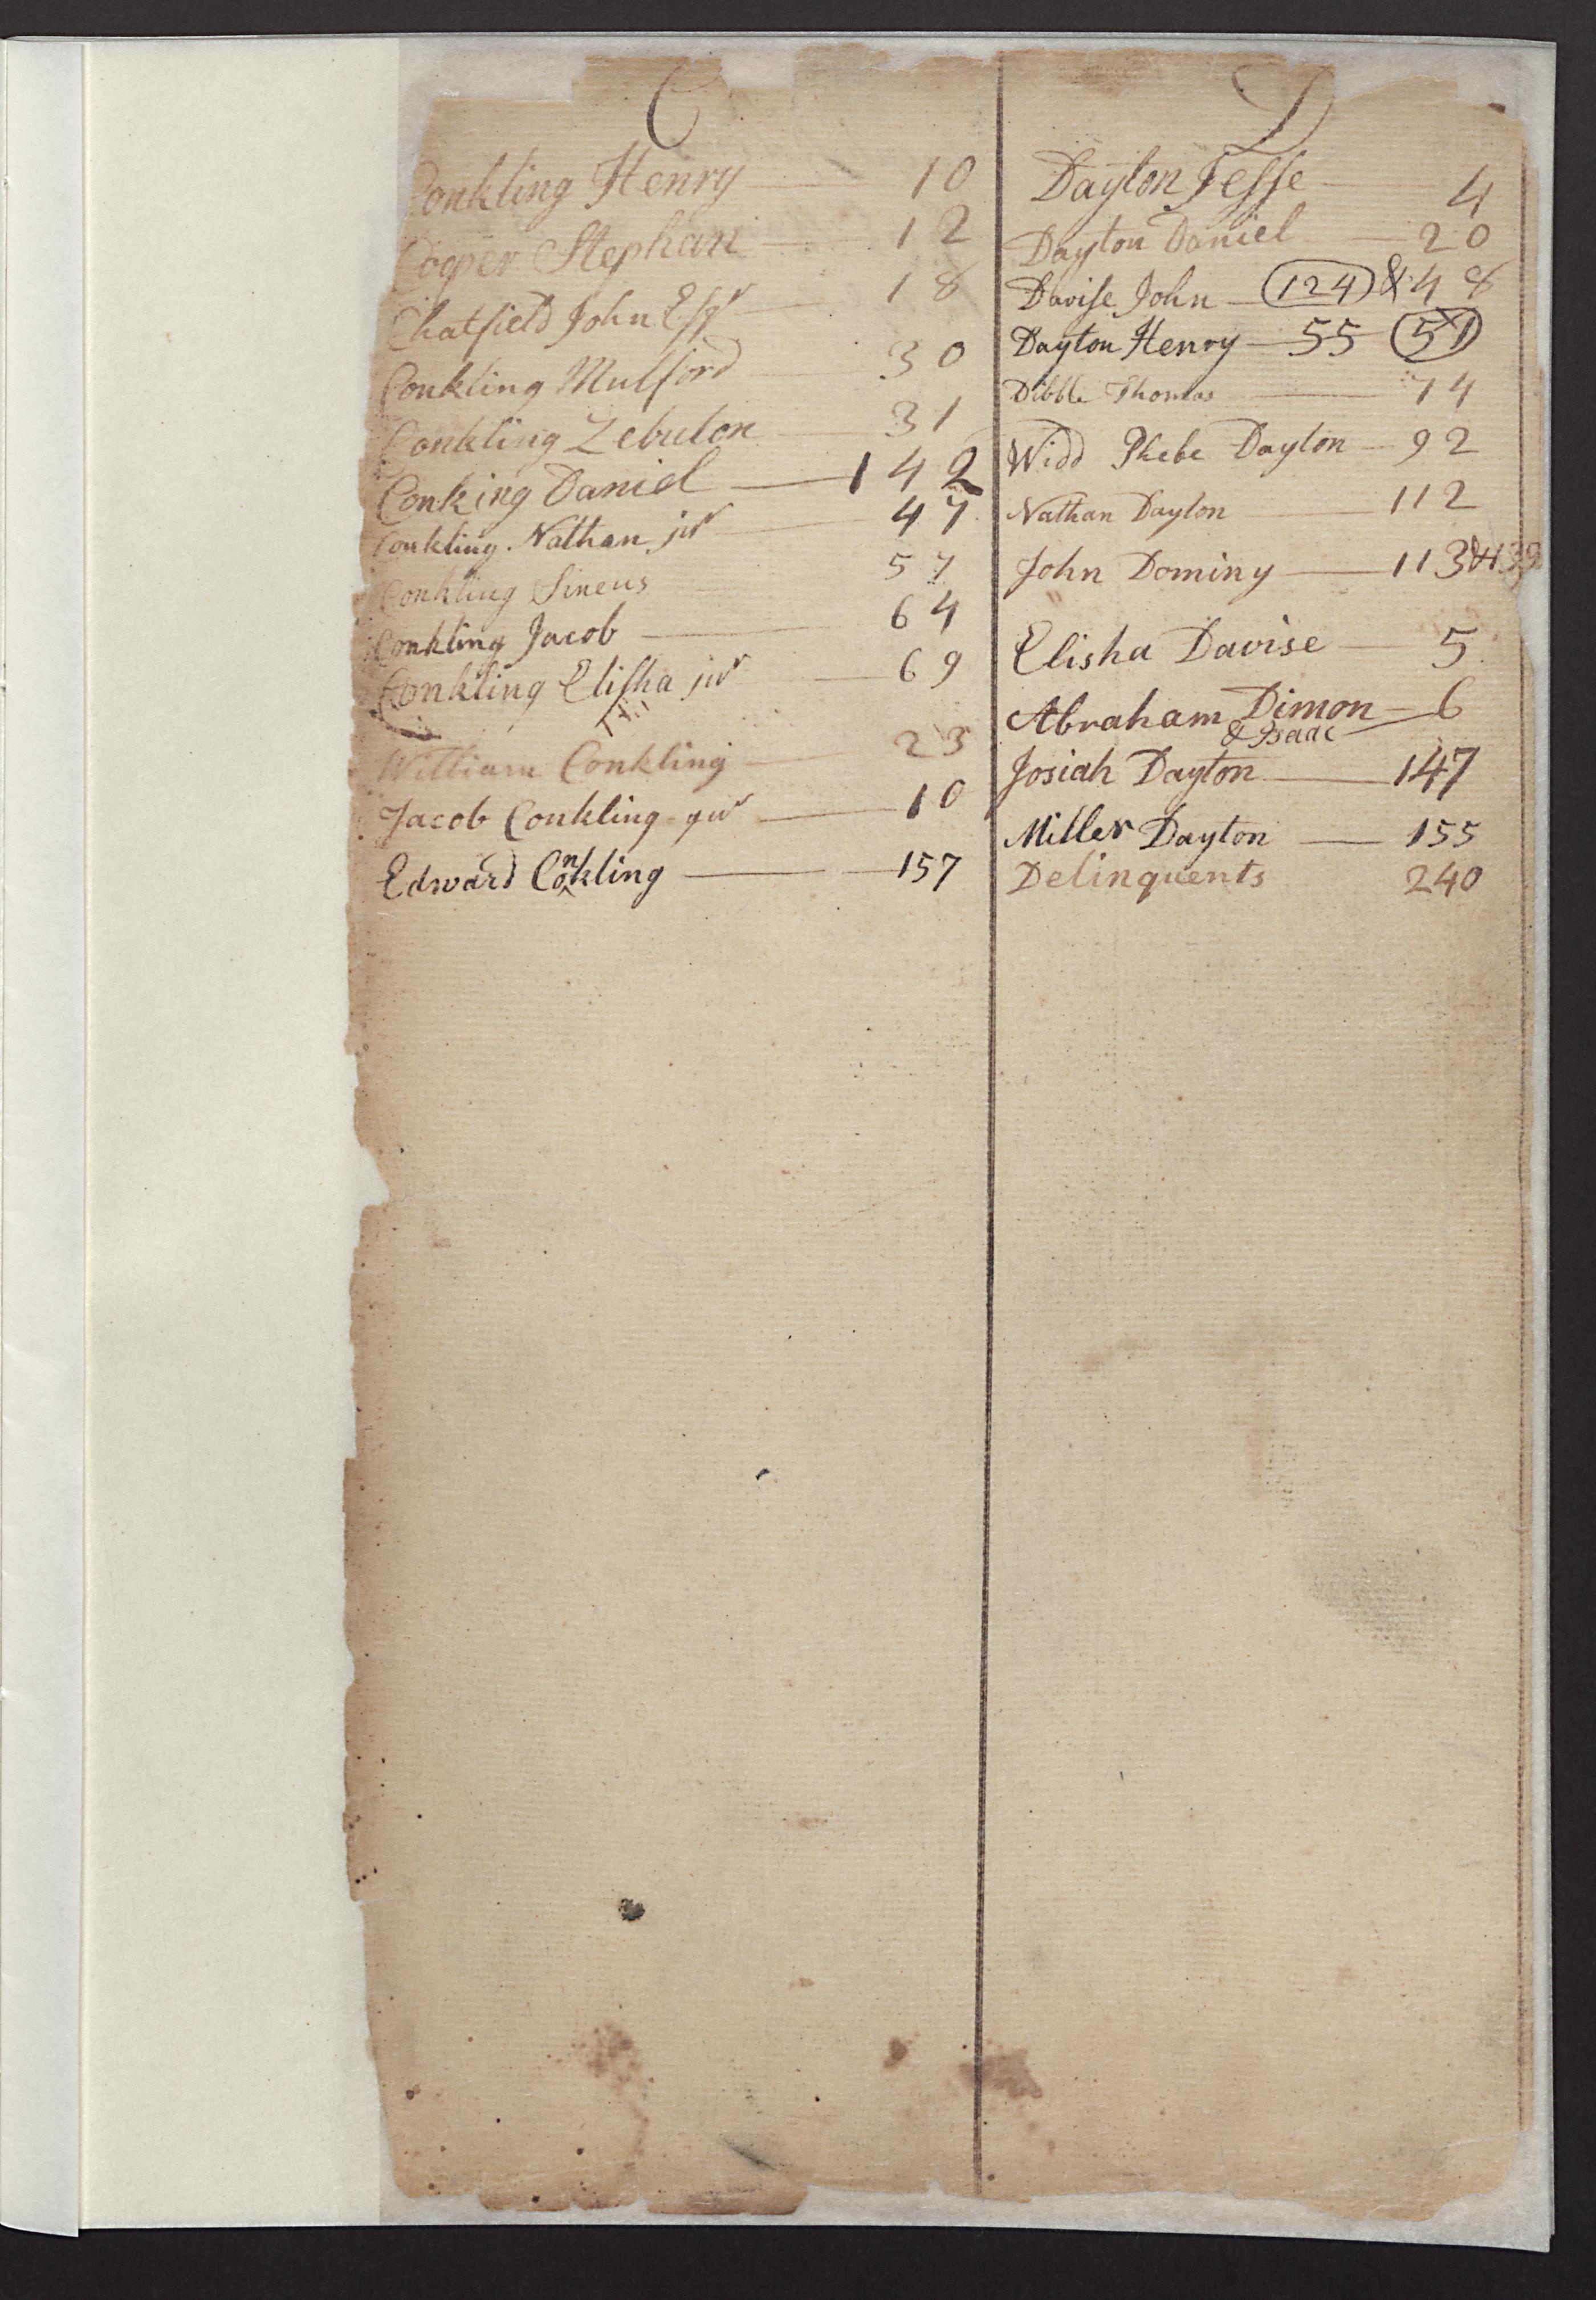 C
Conkling Henry 10
Cooper Stephan 12
Chatfield John Esqr 18
Conkling Mulford 30
Conkling Zebulon 31
Conking Daniel 142
Conkling Nathan jur 47
Conkling Sineus 57
Conkling Jacob 64
Conkling Elisha jur 69
William Conkling 23
Jacob Conkling jur 10
Edward Conkling 157
D
Dayton Jesse 4
Dayton Daniel 20
Davise John 124 & 48
Dayton Henry 55 51
Dibble Thomas 74
Widd Phebe Dayton 92
Nathan Dayton 112
John Dominy 113 & 139
Elisha Davise 5
Abraham Dimon 6
& Isaac
Josiah Dayton 147
Miller Dayton 155
Delinquents 240